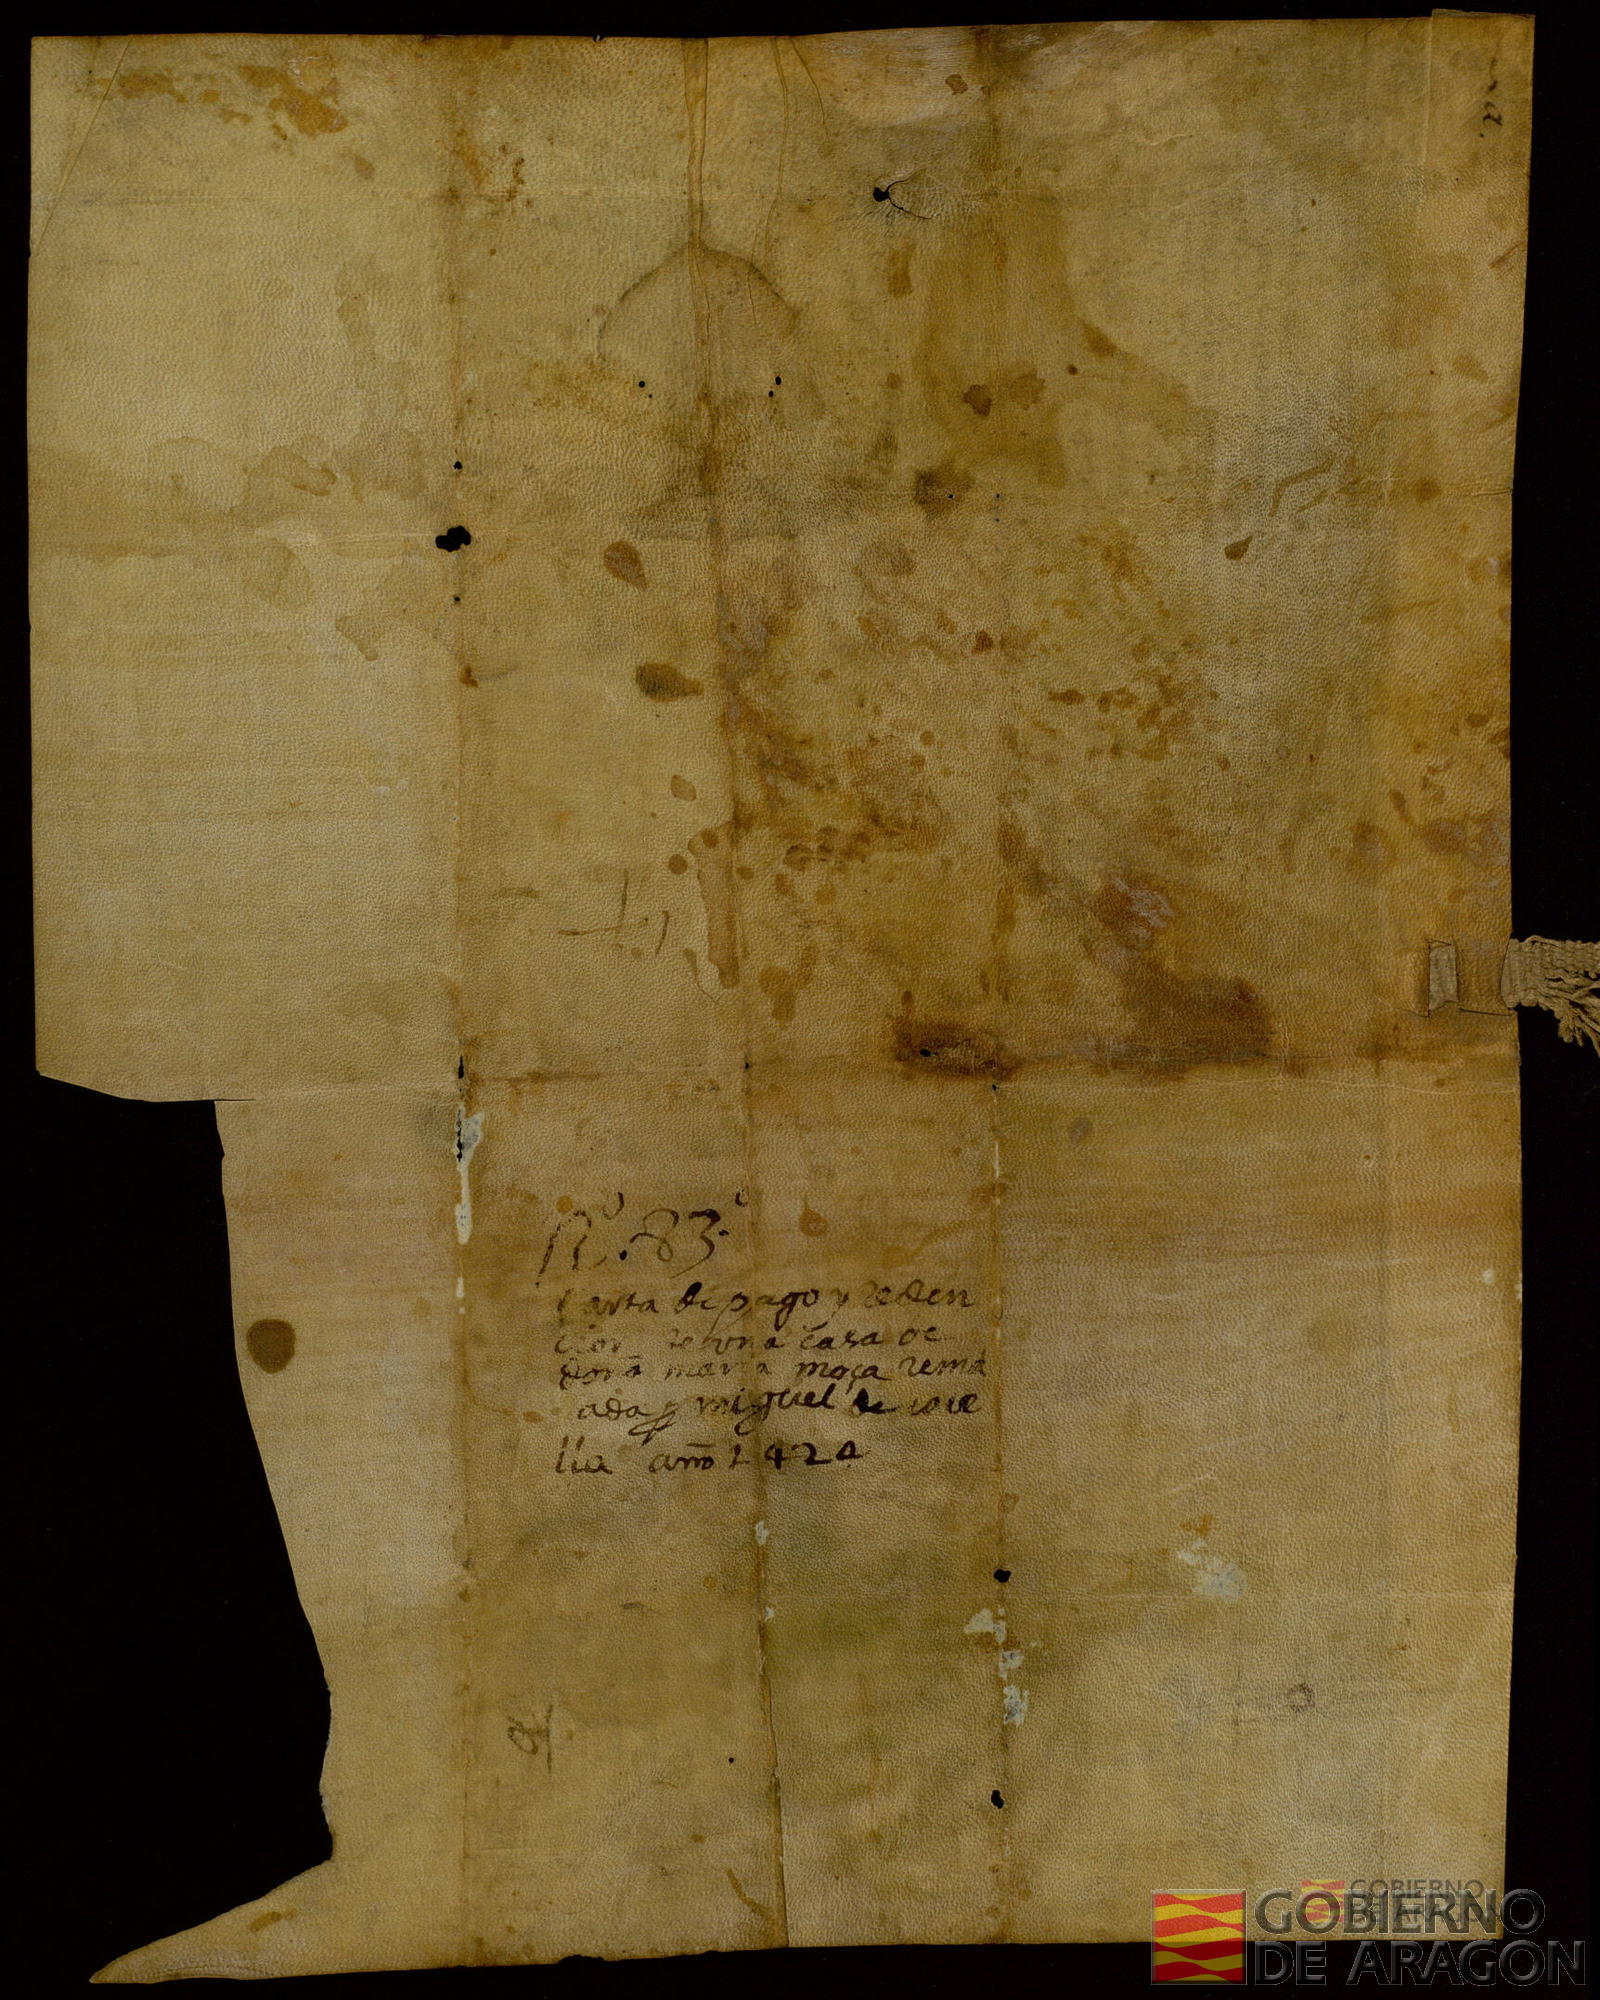 Nº. 83.
Carta de pago y reden
cion de una casa de
dona maria moça rema
ada p miguel de
lla año 1424
GOBIERNO
DE ARAGON